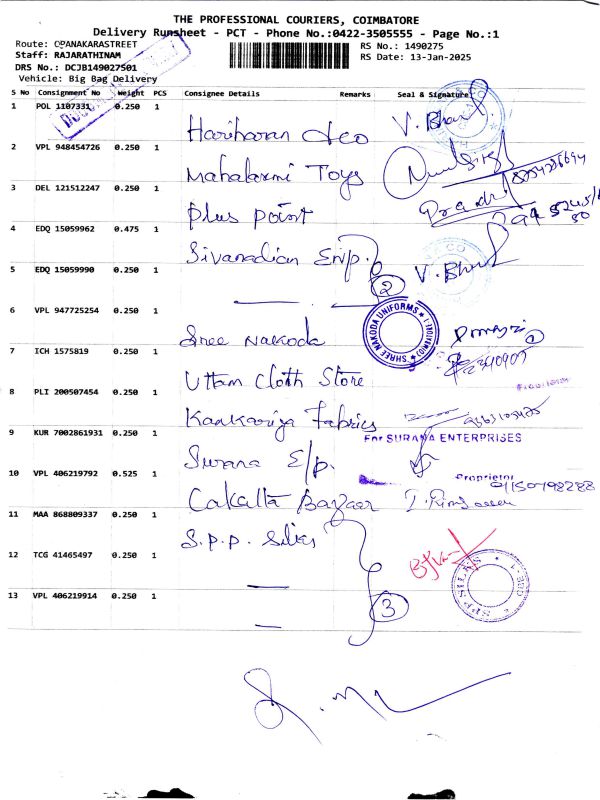 THE PROFESSIONAL COURIERS, COIMBATORE
Delivery Runsheet - PCT - Phone No.:0422-3505555 - Page No.:1
Route: OPANAKARASTREET
RS No.: 1490275
Staff: RAJARATHINAM
RS Date: 13-Jan-2025
DRS No.: DCJB149027501
Vehicle: Big Bag Delivery
S No Consignment No Weight PCS Consignee Details Remarks Seal & Signature
1 POL 1107331 0.250 1 Hariharan &co V. Bharath
2 VPL 948454726 0.250 1 Mahalaxmi Toys
3 DEL 121512247 0.250 1 Plus point
4 EDQ 15059962 0.475 1 Sivanadian Enp.
5 EDQ 15059990 0.250 1 2
6 VPL 947725254 0.250 1 Sree Nakoda
SHREE NAKODA UNIFORMS
7 ICH 1575819 0.250 1 Uttam Cloth Store
8 PLI 200507454 0.250 1 Kankariya Fabrics
9 KUR 7002861931 0.250 1 Surana E/p.
For SURANA ENTERPRISES
Proprietor
10 VPL 406219792 0.525 1 Calcutta Bazaar
11 MAA 868809337 0.250 1 S.P.P. Silks
12 TCG 41465497 0.250 1
SPP SILKS
13 VPL 406219914 0.250 1 3